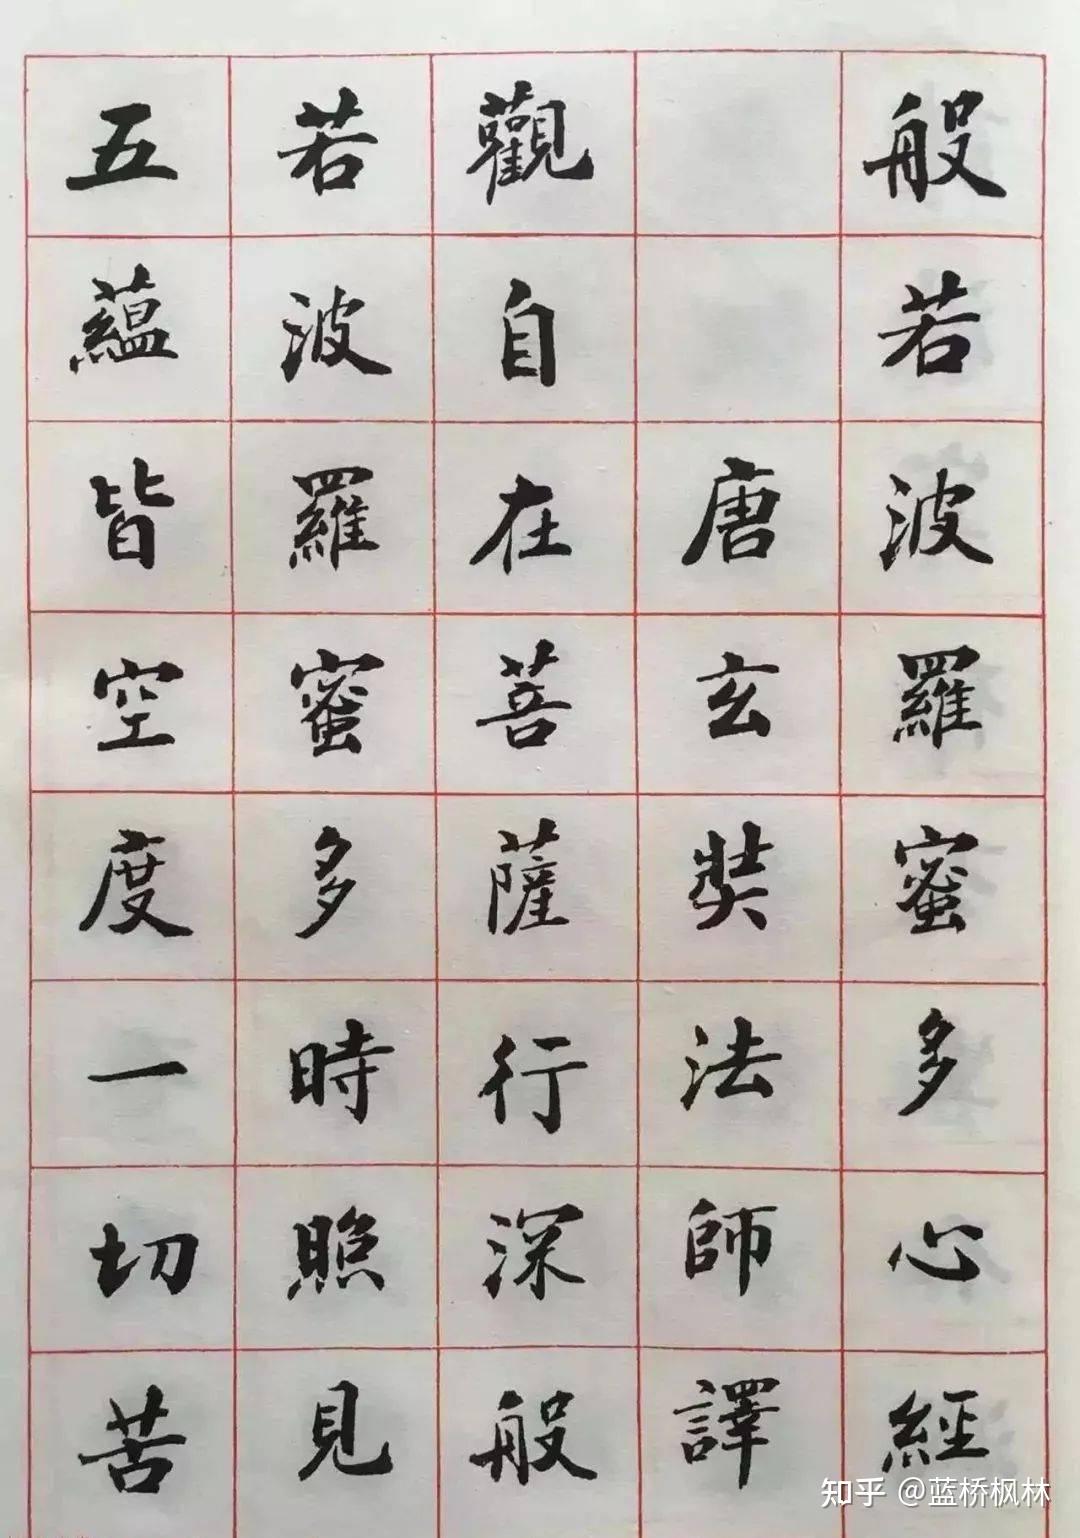 般若波羅蜜多心經
唐玄奘法師譯
觀自在菩薩行深般
若波羅蜜多時照見
五蘊皆空度一切苦
知乎 @蓝桥枫林